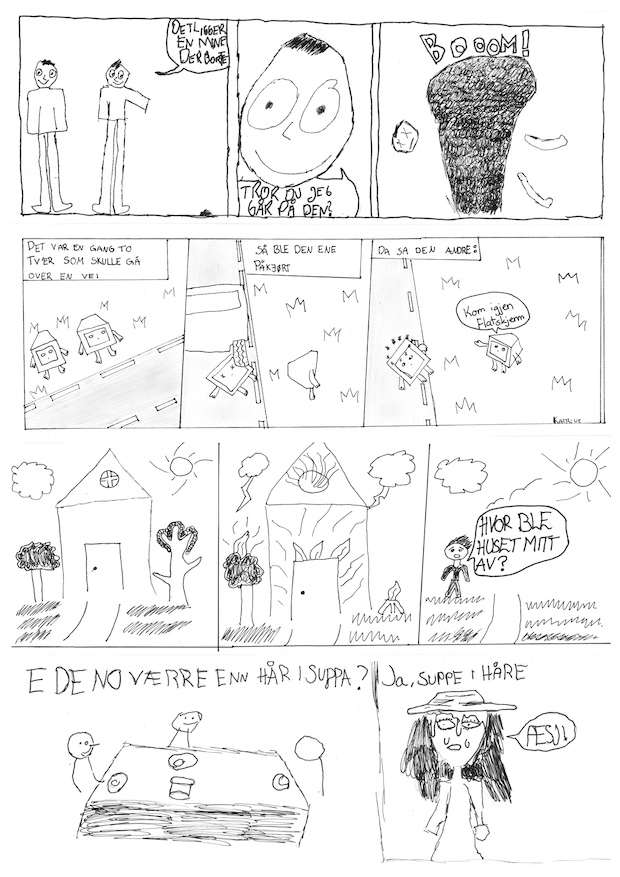 DET LIGGER
EN MINE
DER BORTE
TROR DU JEG
GÅR PÅ DEN?
BOOOM!
DET VAR EN GANG TO
TV'ER SOM SKULLE GÅ
OVER EN VEI
SÅ BLE DEN ENE
PÅKJØRT
DA SA DEN ANDRE:
Kom igjen
Flatskjerm
KATRINE
HVOR BLE
HUSET MITT
AV?
E DE NO VÆRRE ENN HÅR I SUPPA?
Ja, SUPPE I HÅRE
ÆSJ!